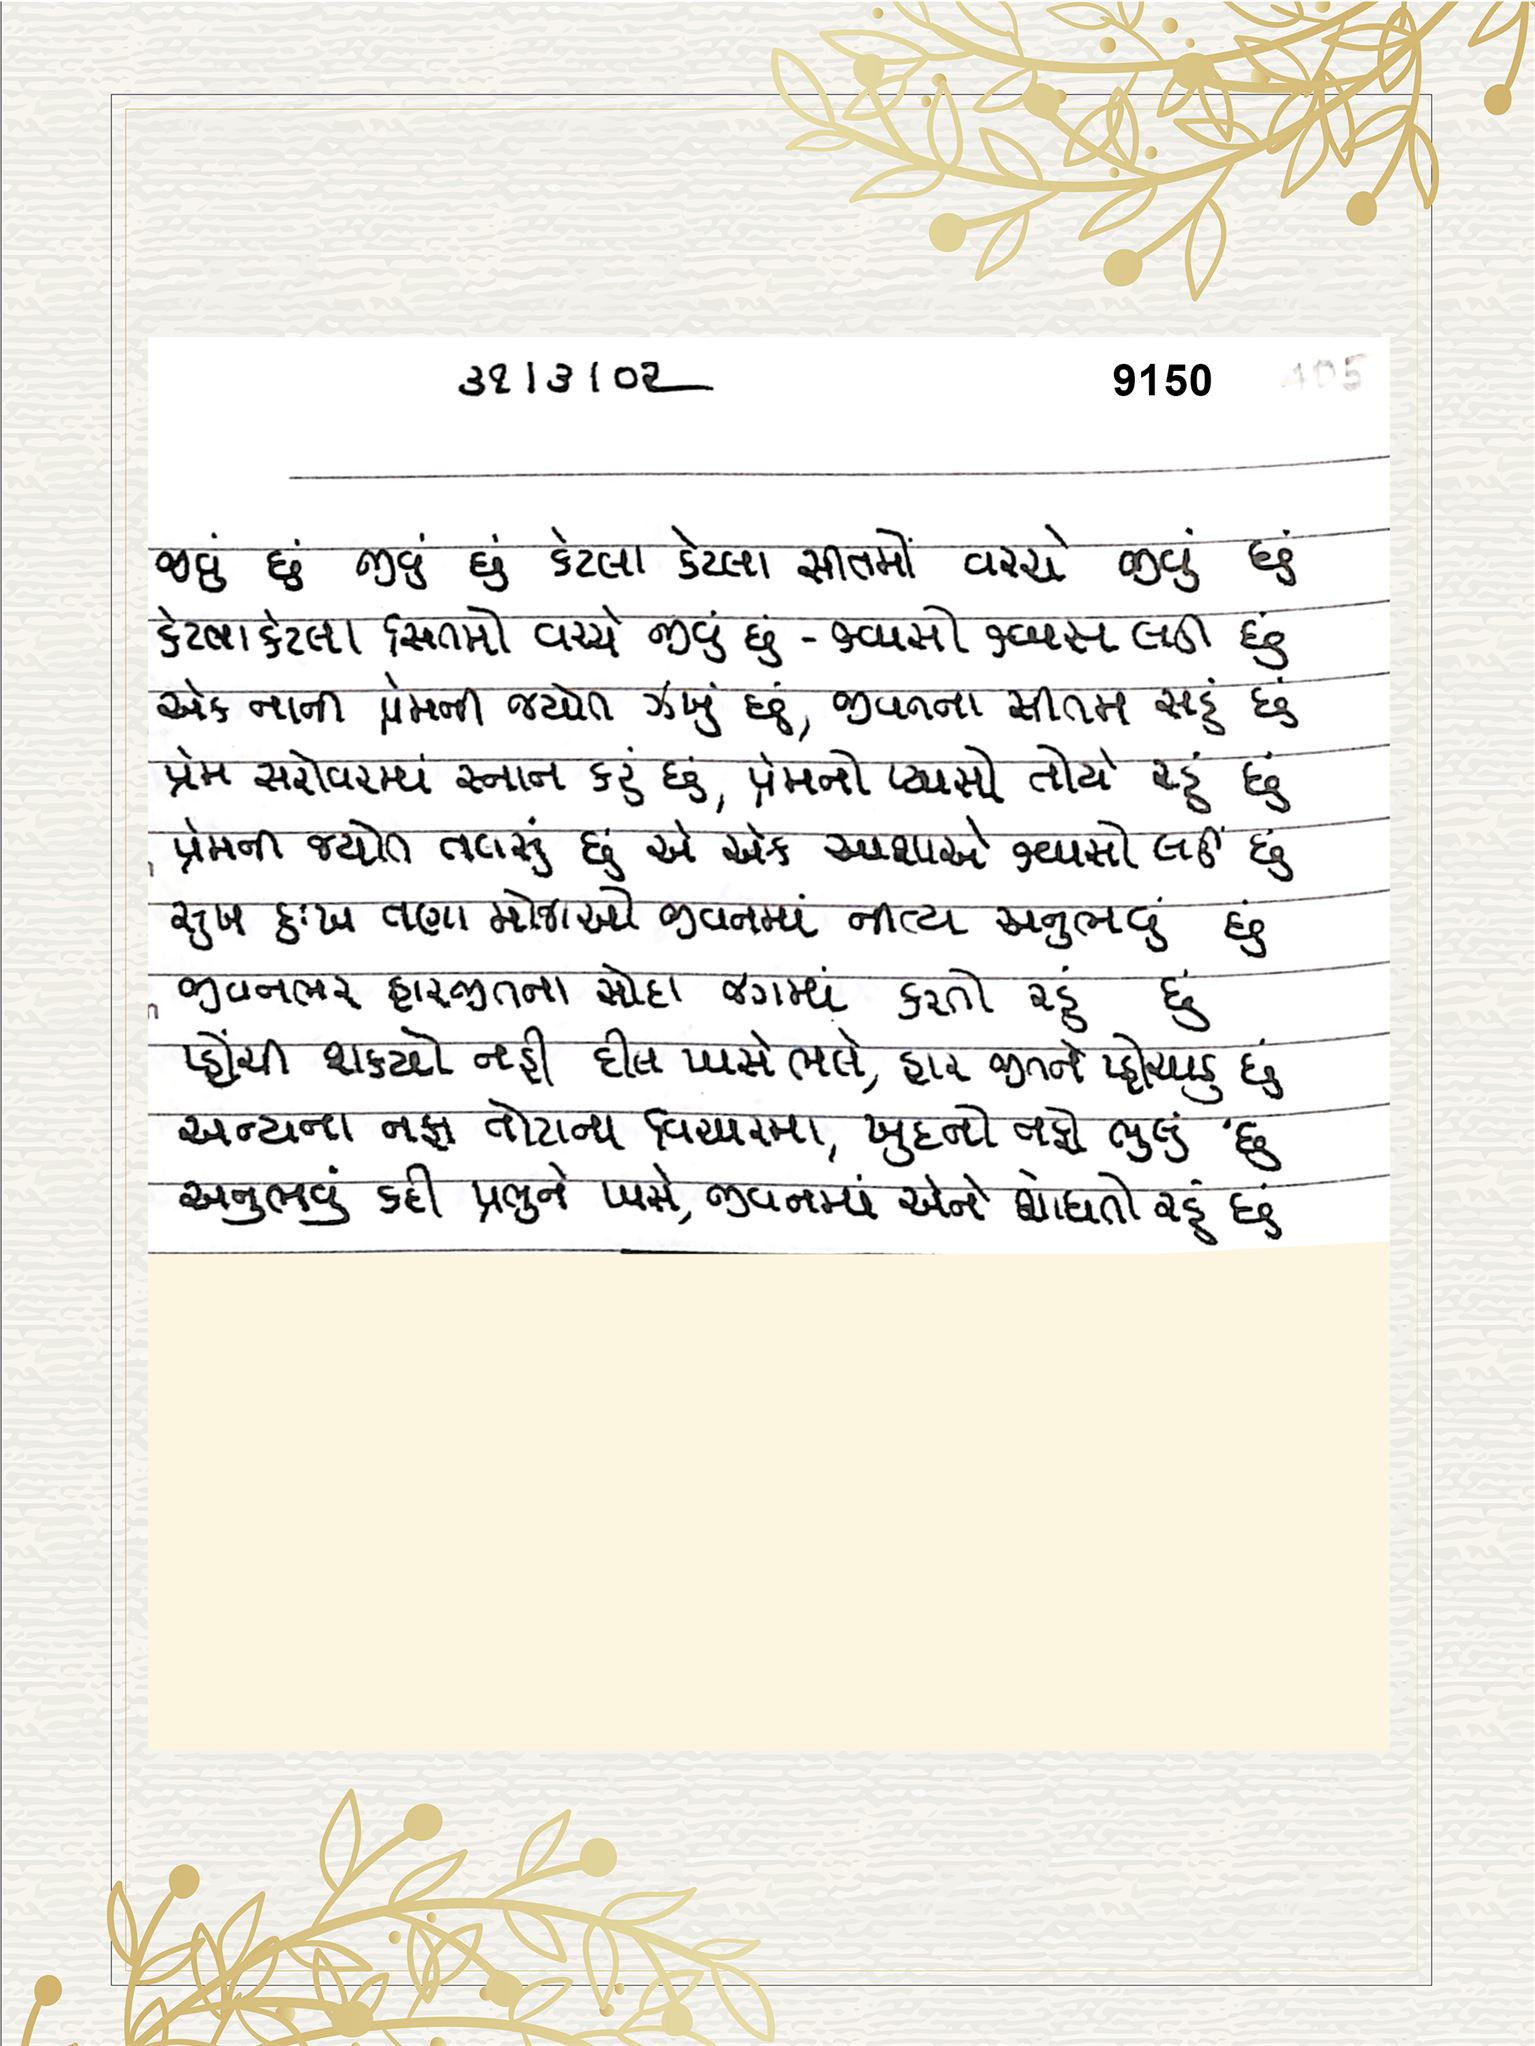 ૩૧/૩/૦૨ 9150 405
જીવું છું જીવું છું કેટલા કેટલા સીતમો વચ્ચે જીવું છું
કેટલા કેટલા સિતમો વચ્ચે જીવું છું - શ્વાસો શ્વાસ લઉ છું
એક નાની પ્રેમની જ્યોત ઝંખું છું, જીવનના સીતમ સહું છું
પ્રેમ સરોવરમાં સ્નાન કરું છું, પ્રેમનો પ્યાસો તોયે રહું છું
પ્રેમની જ્યોત તલસું છું એ એક આશાએ શ્વાસો લઉં છું
સુખ દુઃખ તણા મોજાઓ જીવનમાં નીત્ય અનુભવું છું
જીવનભર હારજીતના સોદા જગમાં કરતો રહું છું
પ્હોંચી શક્યો નહી દીલ પાસે ભલે, હાર જીતને પ્હોચાડુ છું
અન્યના નફા તોટાના વિચારમા, ખુદનો નફો ભુલું છું
અનુભવું કદી પ્રભુને પાસે, જીવનમાં એને શોધતો રહું છું